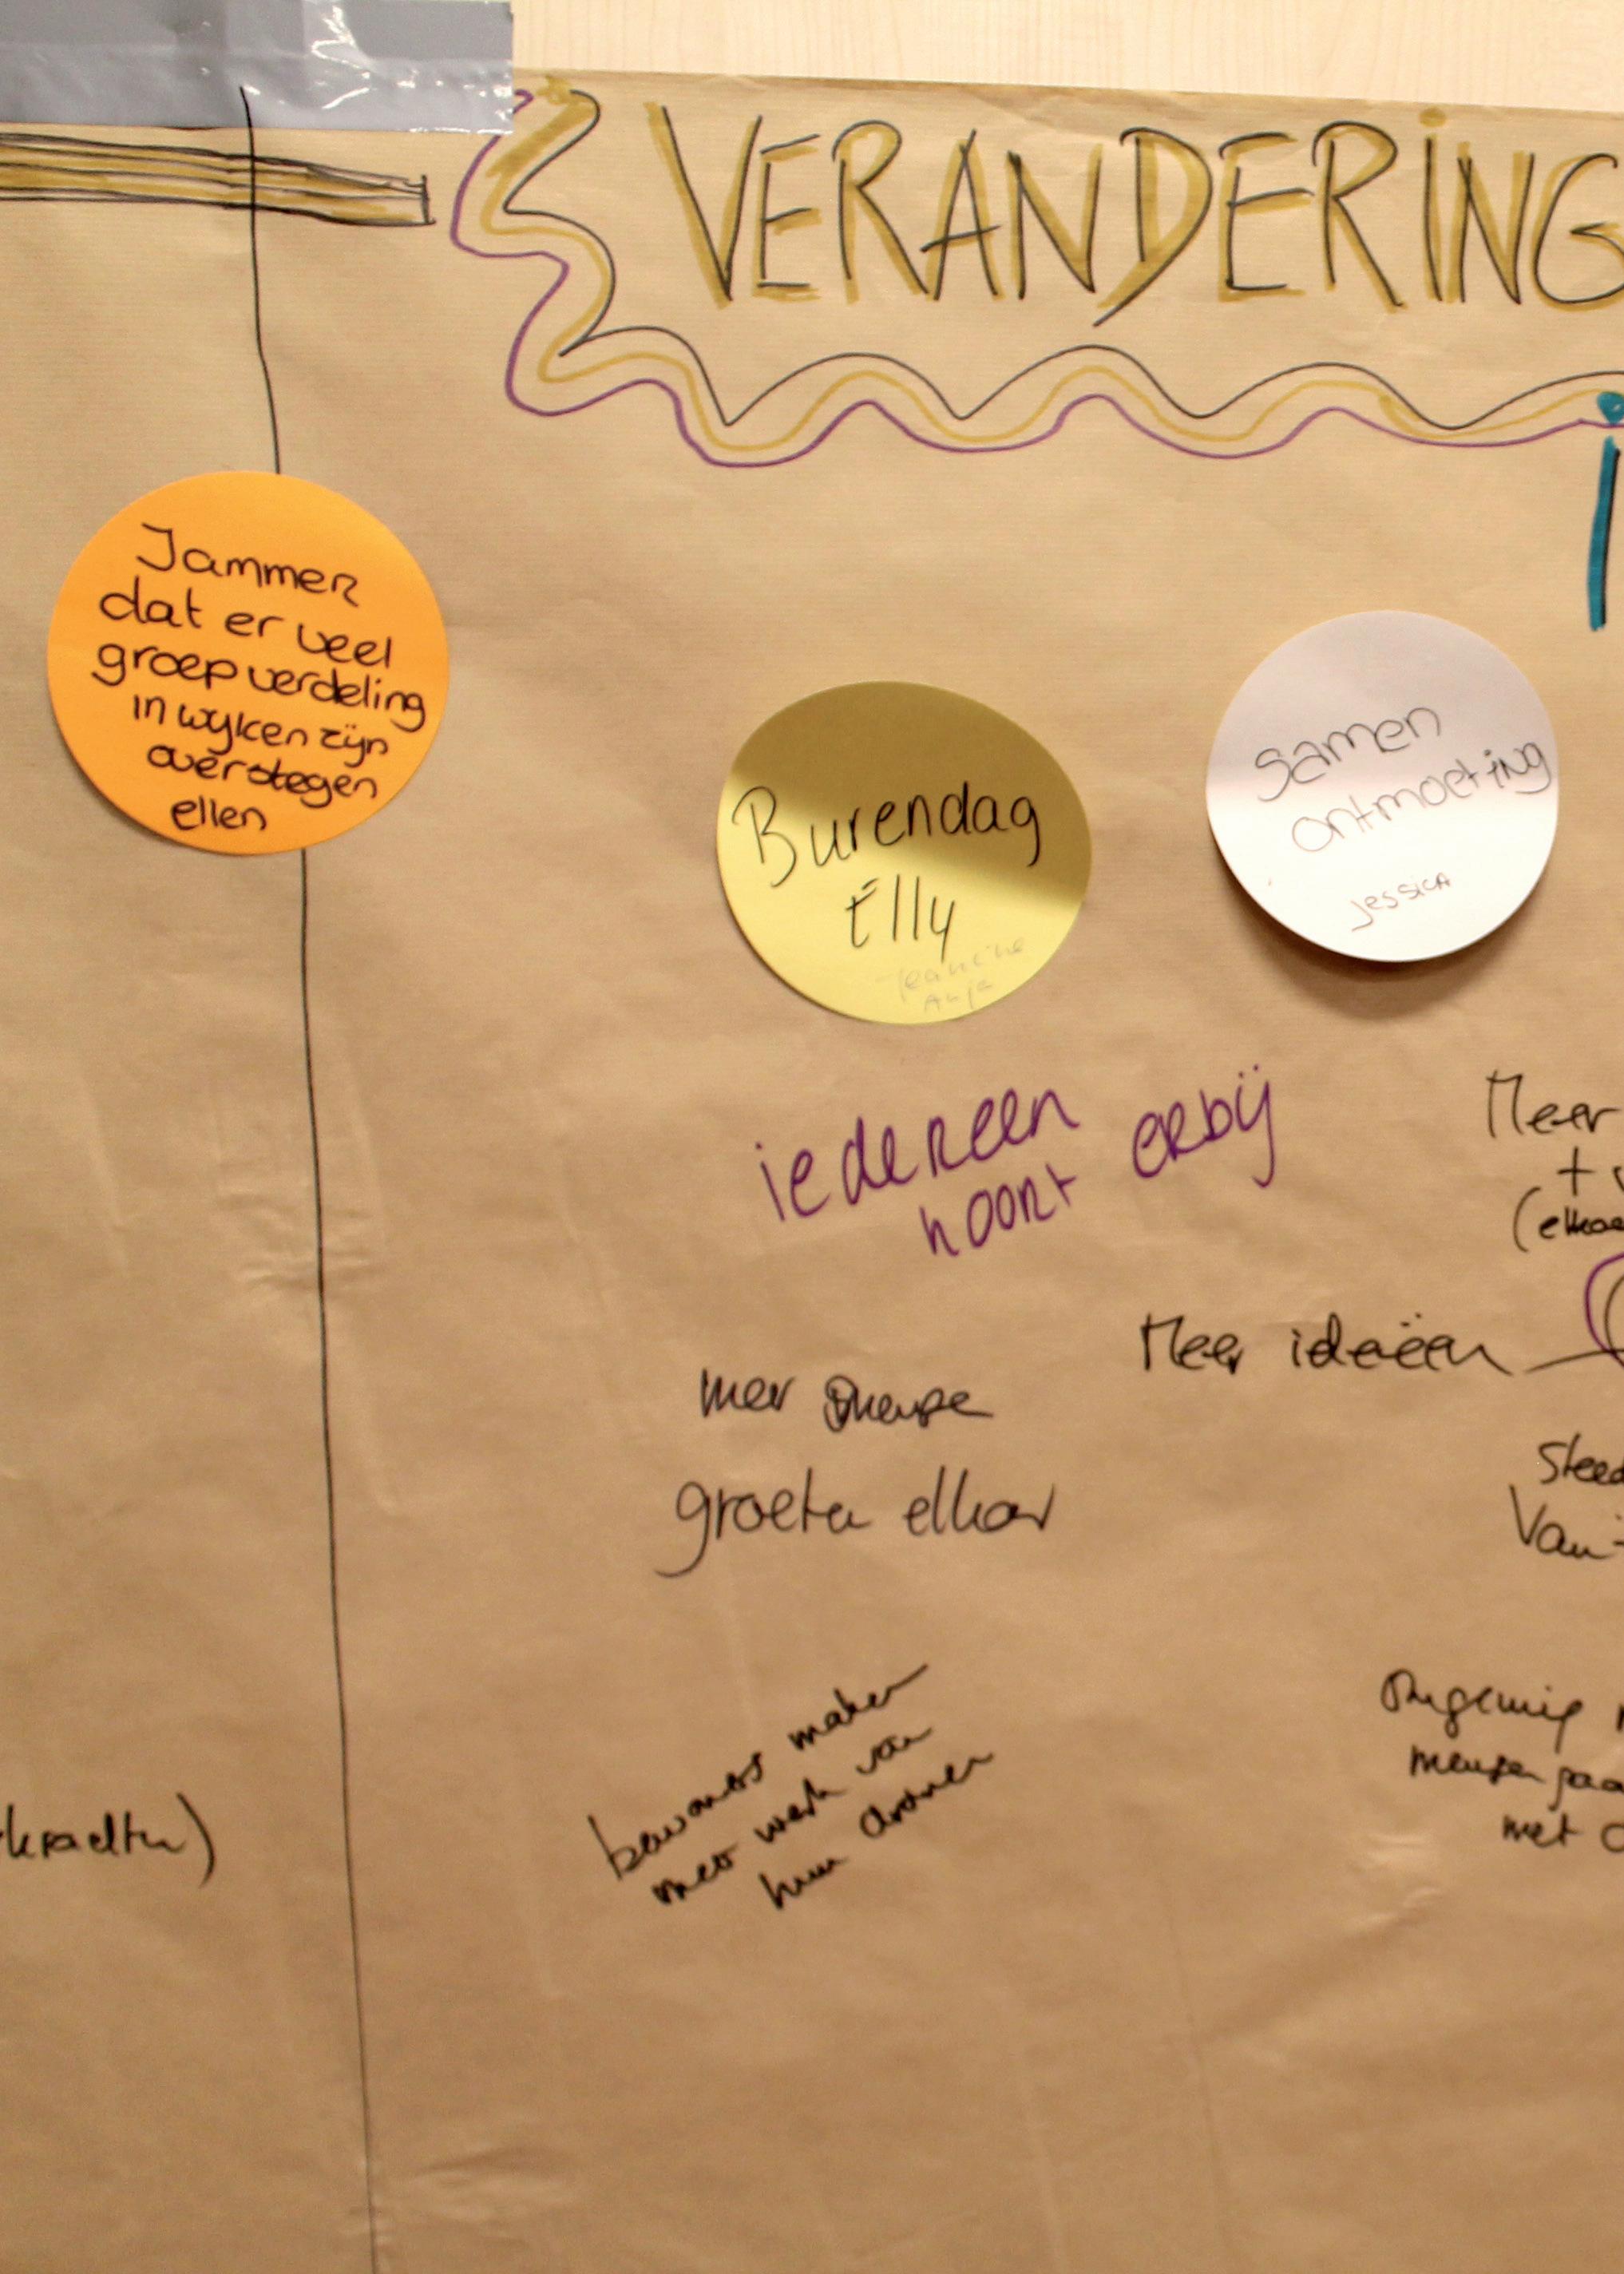 VERANDERING
Jammer
dat er veel
groep verdeling
in wijken zijn
overstegen
ellen
Burendag
Elly
Jeancine
Anja
samen
ontmoeting
Jessica
iedereen erbij
hoort
Meer
+
Meer ideëen
meer mense
groeten elkaar
Steed
Van
bewoners maken
meer werk van
hun dromen
mensen gaa
met